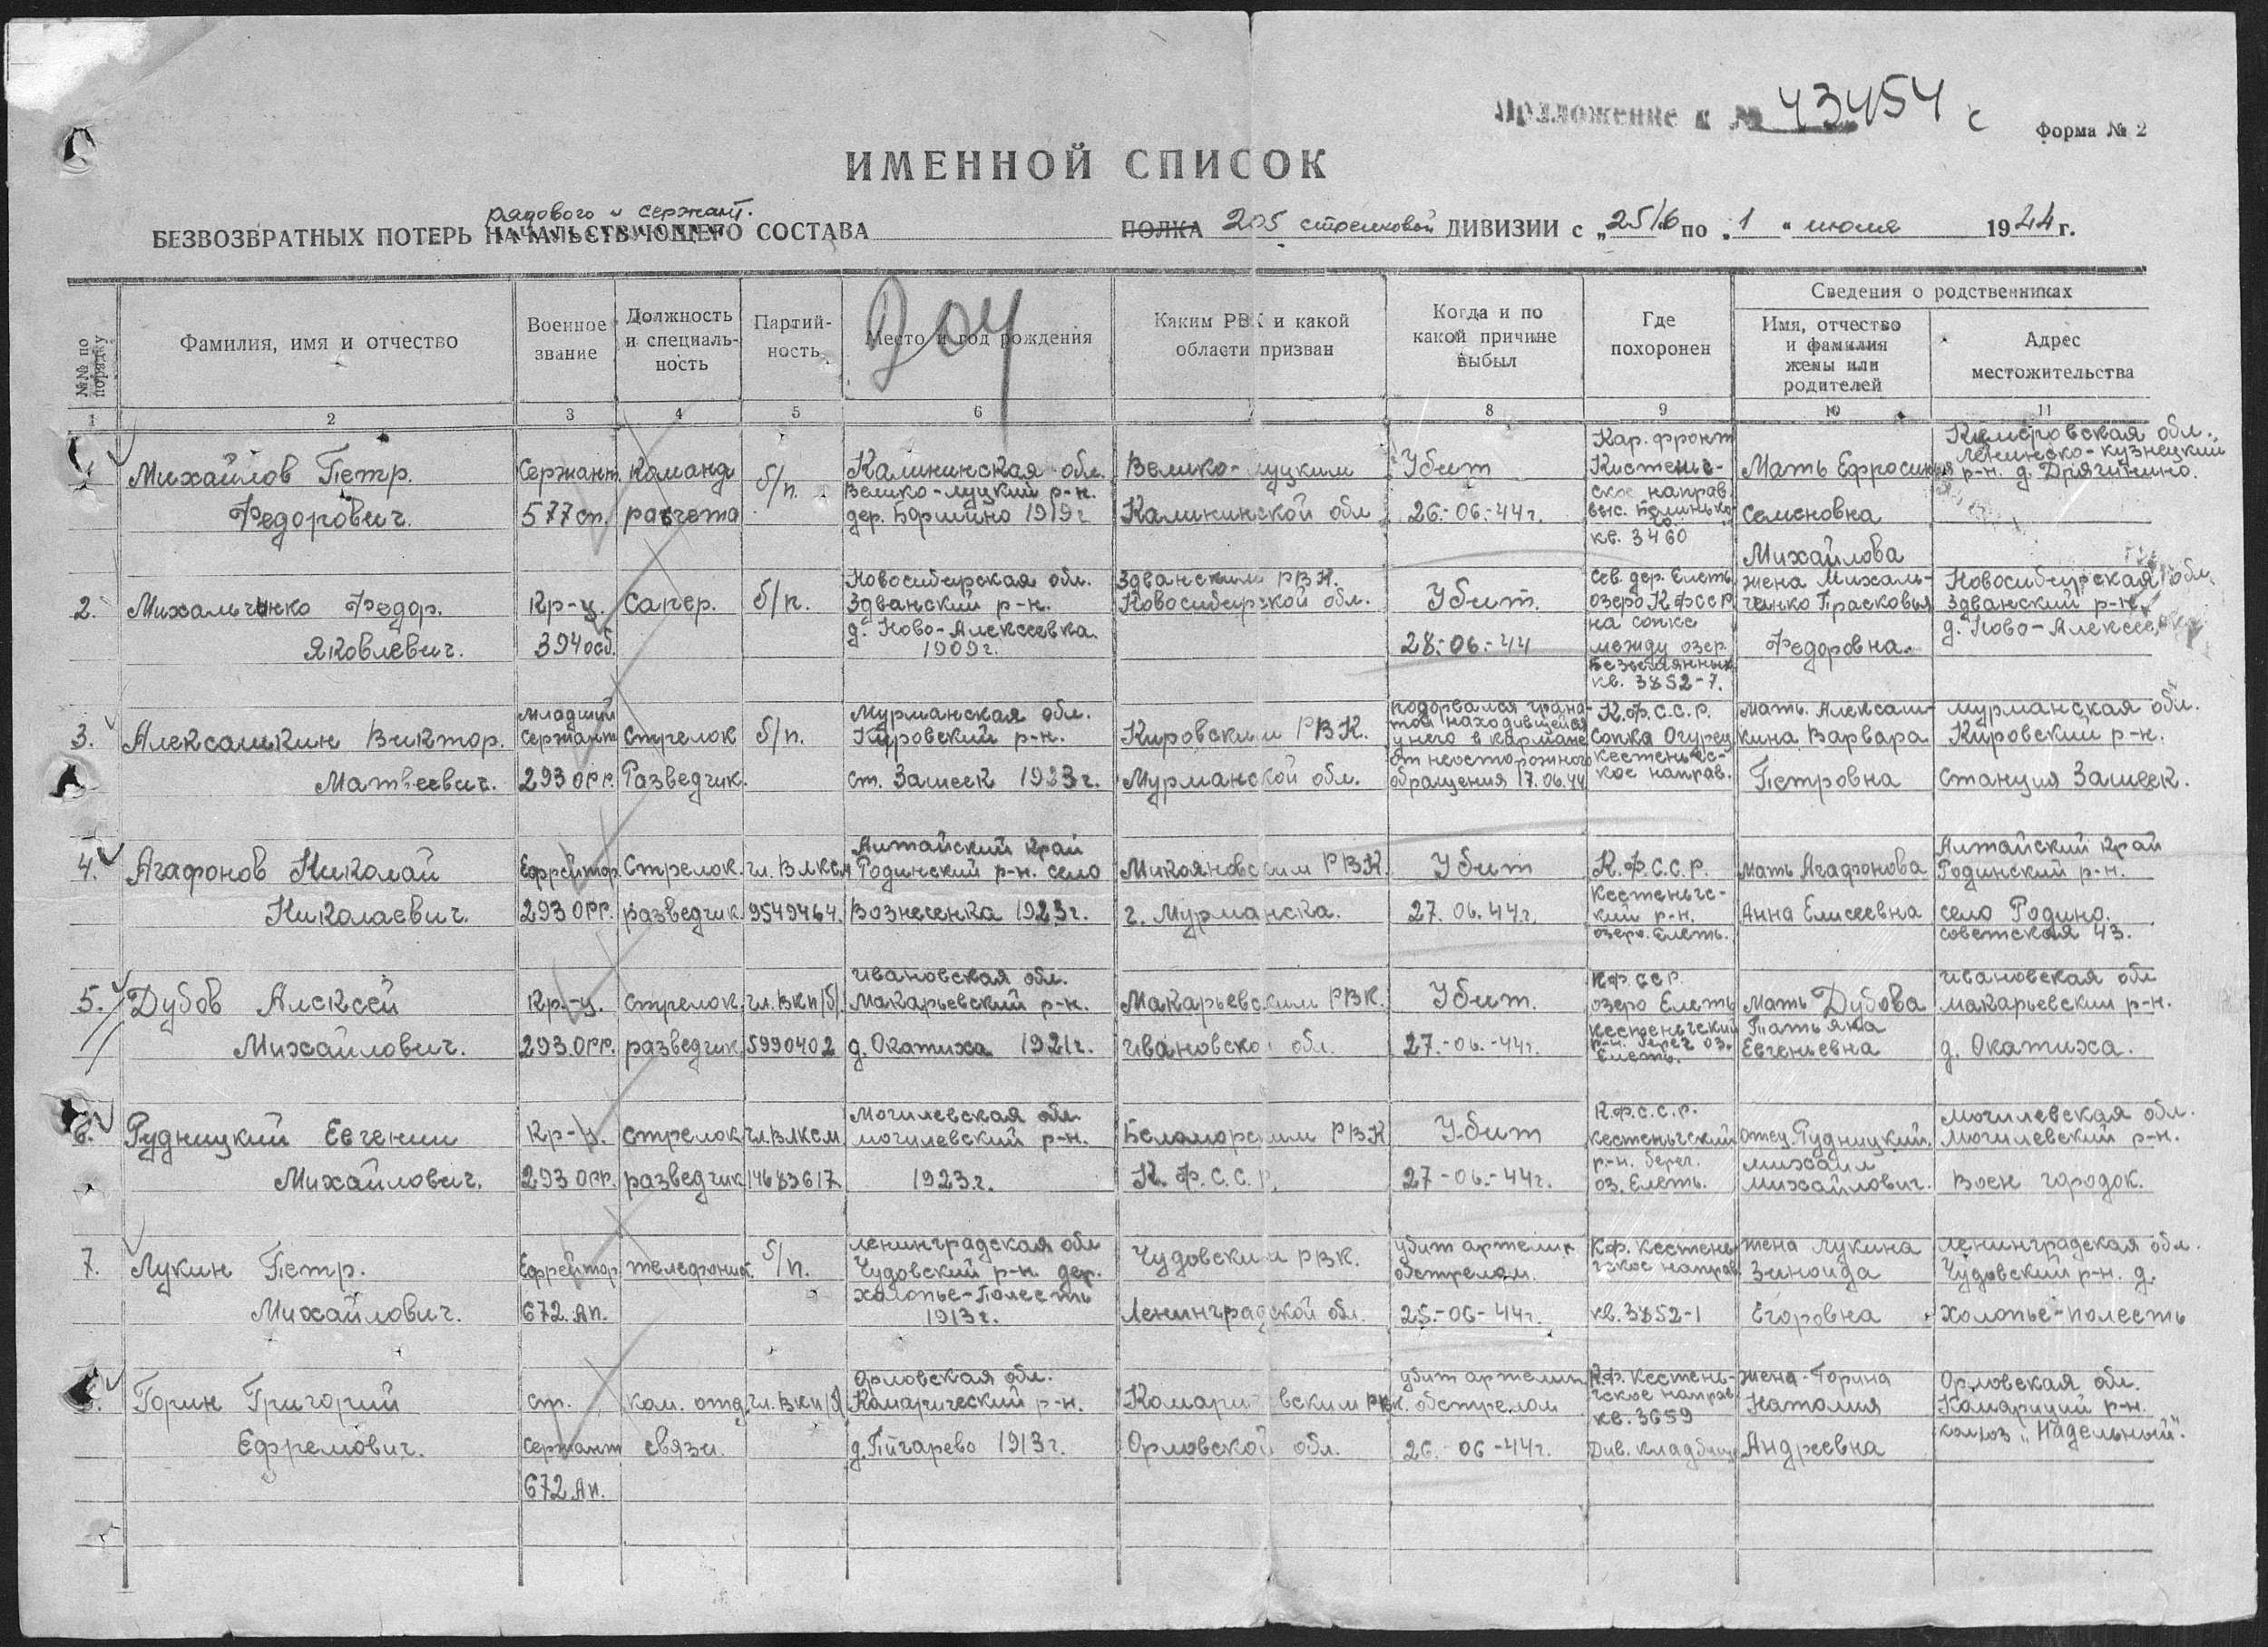 Приложение к № 43454 с
Форма № 2
ИМЕННОЙ СПИСОК
рядового и сержант.
БЕЗВОЗВРАТНЫХ ПОТЕРЬ НАЧАЛЬСТВУЮЩЕГО СОСТАВА ПОЛКА 205 стрелковой ДИВИЗИИ с „25/6 по „1“ июля 1944 г.
204
№№ по порядку
Фамилия, имя и отчество
Военное звание
Должность и специальность
Партийность
Место и год рождения
Каким РВК и какой области призван
Когда и по какой причине выбыл
Где похоронен
Сведения о родственниках
Имя, отчество и фамилия жены или родителей
Адрес местожительства
1 2 3 4 5 6 8 9 10 11
Михайлов Петр.
Федорович.
Сержант.
577 сп.
Команд
расчета
б/п.
Калининская обл.
Велико-луцкий р-н.
дер. 1919г
Велико-луцким
Калининской обл
Убит
26.-06.-44г.
Кар. фронт
Кистеньг-
ское направ.
выс.
кв. 3460
Мать Ефросинья
Семеновна
Михайлова
Кемеровская обл.
Ленинско-кузнецкий
р-н. д. Дрягинино.
2.
Михальченко Федор.
Яковлевич.
Кр-ц.
394 осб.
Сапер.
б/п.
Новосибирская обл.
Здванский р-н.
д. Ново-Алексеевка.
1909г.
Здванским РВК.
Новосибирской обл.
Убит.
28.-06.-44
Сев. дер. Елеть
озеро КФССР
на сопке
между озер
Безымянных
кв. 3852-7.
жена Михаль-
ченко Прасковья
Федоровна.
Новосибирская обл.
Здванский р-н.
д. Ново-Алексеевка
3.
Алексашкин Виктор.
Матвеевич.
Младший
Сержант
293 ОРР.
Стрелок
Разведчик.
б/п.
Мурманская обл.
Кировский р-н.
ст. Зашеек 1923г.
Кировским РВК.
Мурманской обл.
подорвался грана-
той находившейся
у него в кармане
от неосторожного
обращения 17.06.44
К.Ф.С.С.Р.
Сопка Огурец
кестеньгс-
кое направ.
Мать. Алексаш-
кина Варвара
Петровна
Мурманская обл.
Кировский р-н.
Станция Зашеек.
4.
Агафонов Николай
Николаевич.
Ефрейтор.
293 ОРР.
Стрелок.
разведчик.
чл. ВЛКСМ
9549464.
Алтайский край
Родинский р-н. село
Вознесенка 1923г.
Микояновским РВК.
г. Мурманска.
Убит
27.06.44г.
К.Ф.С.С.Р.
Кестеньгс-
кий р-н.
озеро. Елеть.
Мать Агафонова
Анна Елисеевна
Алтайский край
Родинский р-н.
село Родино.
советская 43.
5.
Дубов Алексей
Михайлович.
Кр-ц.
293.ОРР.
Стрелок.
разведчик
чл. ВКП/б/.
5990402
Ивановская обл.
Макарьевский р-н.
д. Окатиха 1921г.
Макарьевским РВК.
Ивановской обл.
Убит.
27.-06.-44г.
КФССР.
озеро Елеть
Кестеньгский
р-н. берег оз.
Елеть.
Мать Дубова
Татьяна
Евгеньевна
Ивановская обл
Макарьевский р-н.
д. Окатиха.
6.
Рудницкий Евгений
Михайлович.
Кр-ц.
293 ОРР.
стрелок
разведчик
чл. ВЛКСМ
14683617
Могилевская обл.
могилевский р-н.
1923г.
Беломорским РВК
К.Ф.С.С.Р.
Убит
27-06.-44г.
К.Ф.С.С.Р.
кестеньгский
р-н. берег.
оз. Елеть.
отец Рудницкий.
Михаил
Михайлович.
Могилевская обл.
Могилевский р-н.
Воен городок.
7.
Лукин Петр.
Михайлович.
Ефрейтор.
672.Ап.
телефонист.
б/п.
Ленинградская обл
Чудовский р-н. дер.
Холопье-Полесть
1913г.
Чудовским РВК.
Ленинградской обл.
убит артелир
обстрелом.
25.-06-44г.
КФ. Кестень-
гское направ.
кв. 3852-1
жена Лукина
Зиноида
Егоровна
Ленинградская обл.
Чудовский р-н. д.
Холопье-полесть
8.
Горин Григорий
Ефремович.
ст.
Сержант
672.Ап.
ком. отд.
связи.
чл. ВКП/б/
Орловская обл.
Комаричский р-н.
д. Пигарево 1913г.
Комаричевским РВК.
Орловской обл.
убит артелир
обстрелом
26.-06-44г.
КФ. Кестень-
гское направ
кв. 3659
Див. кладбище
жена-Горина
Наталия
Андреевна
Орловская обл.
Комариций р-н.
колхоз „Надельный“.